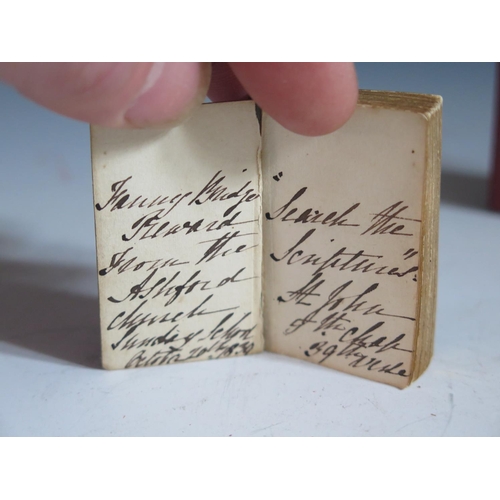 Fanny Bridges
Reward
From the
Ashford
church
Sunday School
20th
"Search the
Scriptures"
St John
5th Chap
39th verse